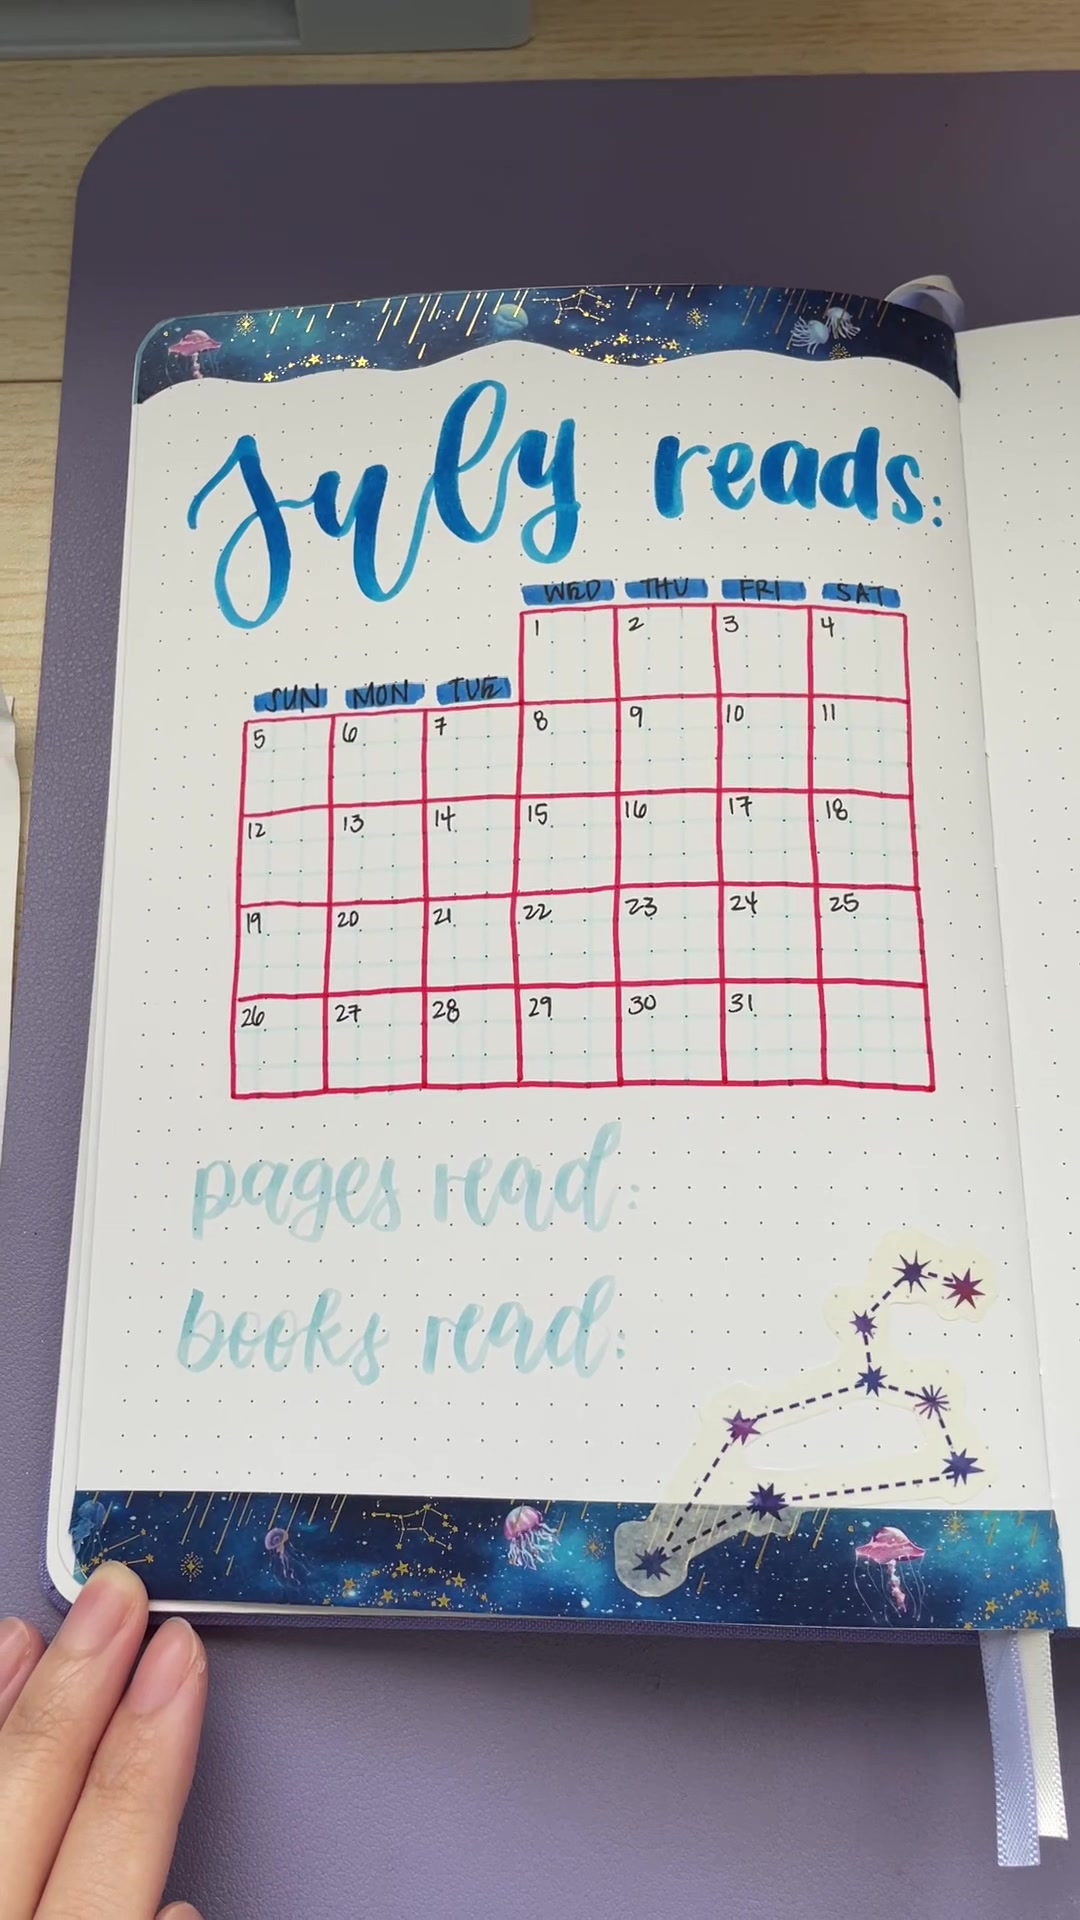 July reads:
WED THU FRI SAT
1 2 3 4
SUN MON TUE
5 6 7 8 9 10 11
12 13 14 15 16 17 18
19 20 21 22 23 24 25
26 27 28 29 30 31
pages read:
books read: